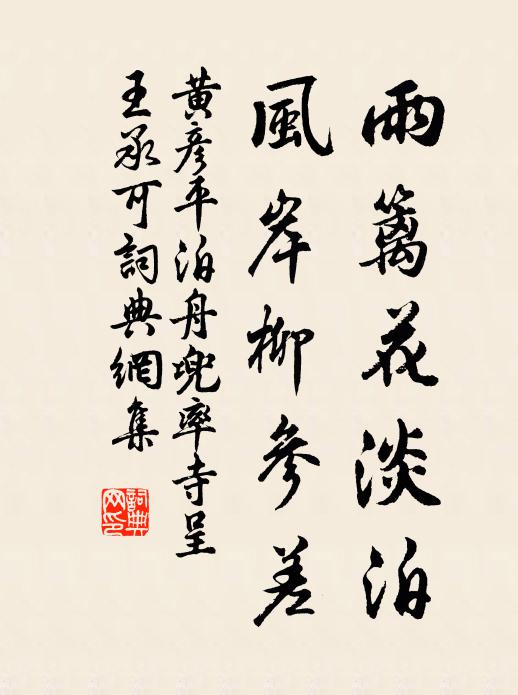 雨籬花淡泊
風岸柳參差
黃彥平泊舟兜率寺呈
王承可詞典網集
詞典網印